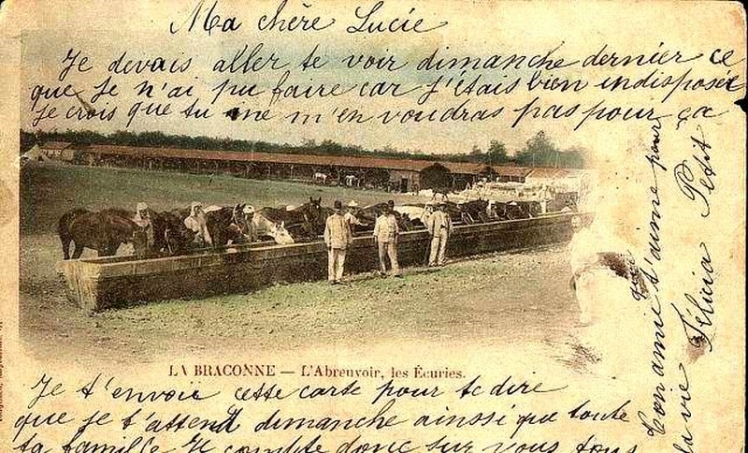 Ma chère Lucie
Je devais aller te voir dimanche dernier ce
que je n'ai pu faire car j'étais bien indisposé
je crois que tu ne m'en voudras pas pour ça
LA BRACONNE — L'Abreuvoir, les Écuries.
Je t'envoie cette carte pour te dire
que je t'attend dimanche ainssi que toute
ta famille Je compte donc sur vous tous
Ton amie qui t'aime pour
la vie Félicia Petit